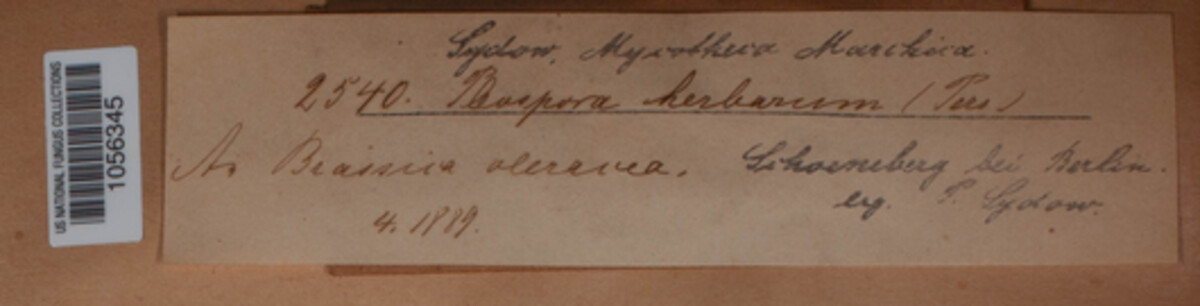 US NATIONAL FUNGUS COLLECTIONS
1056345
Sydow, Mycotheca Marchica.
2540. Pleospora herbarum (Pers.)
An Brassica oleracea. Schoeneberg bei Berlin.
leg. P. Sydow.
4. 1889.